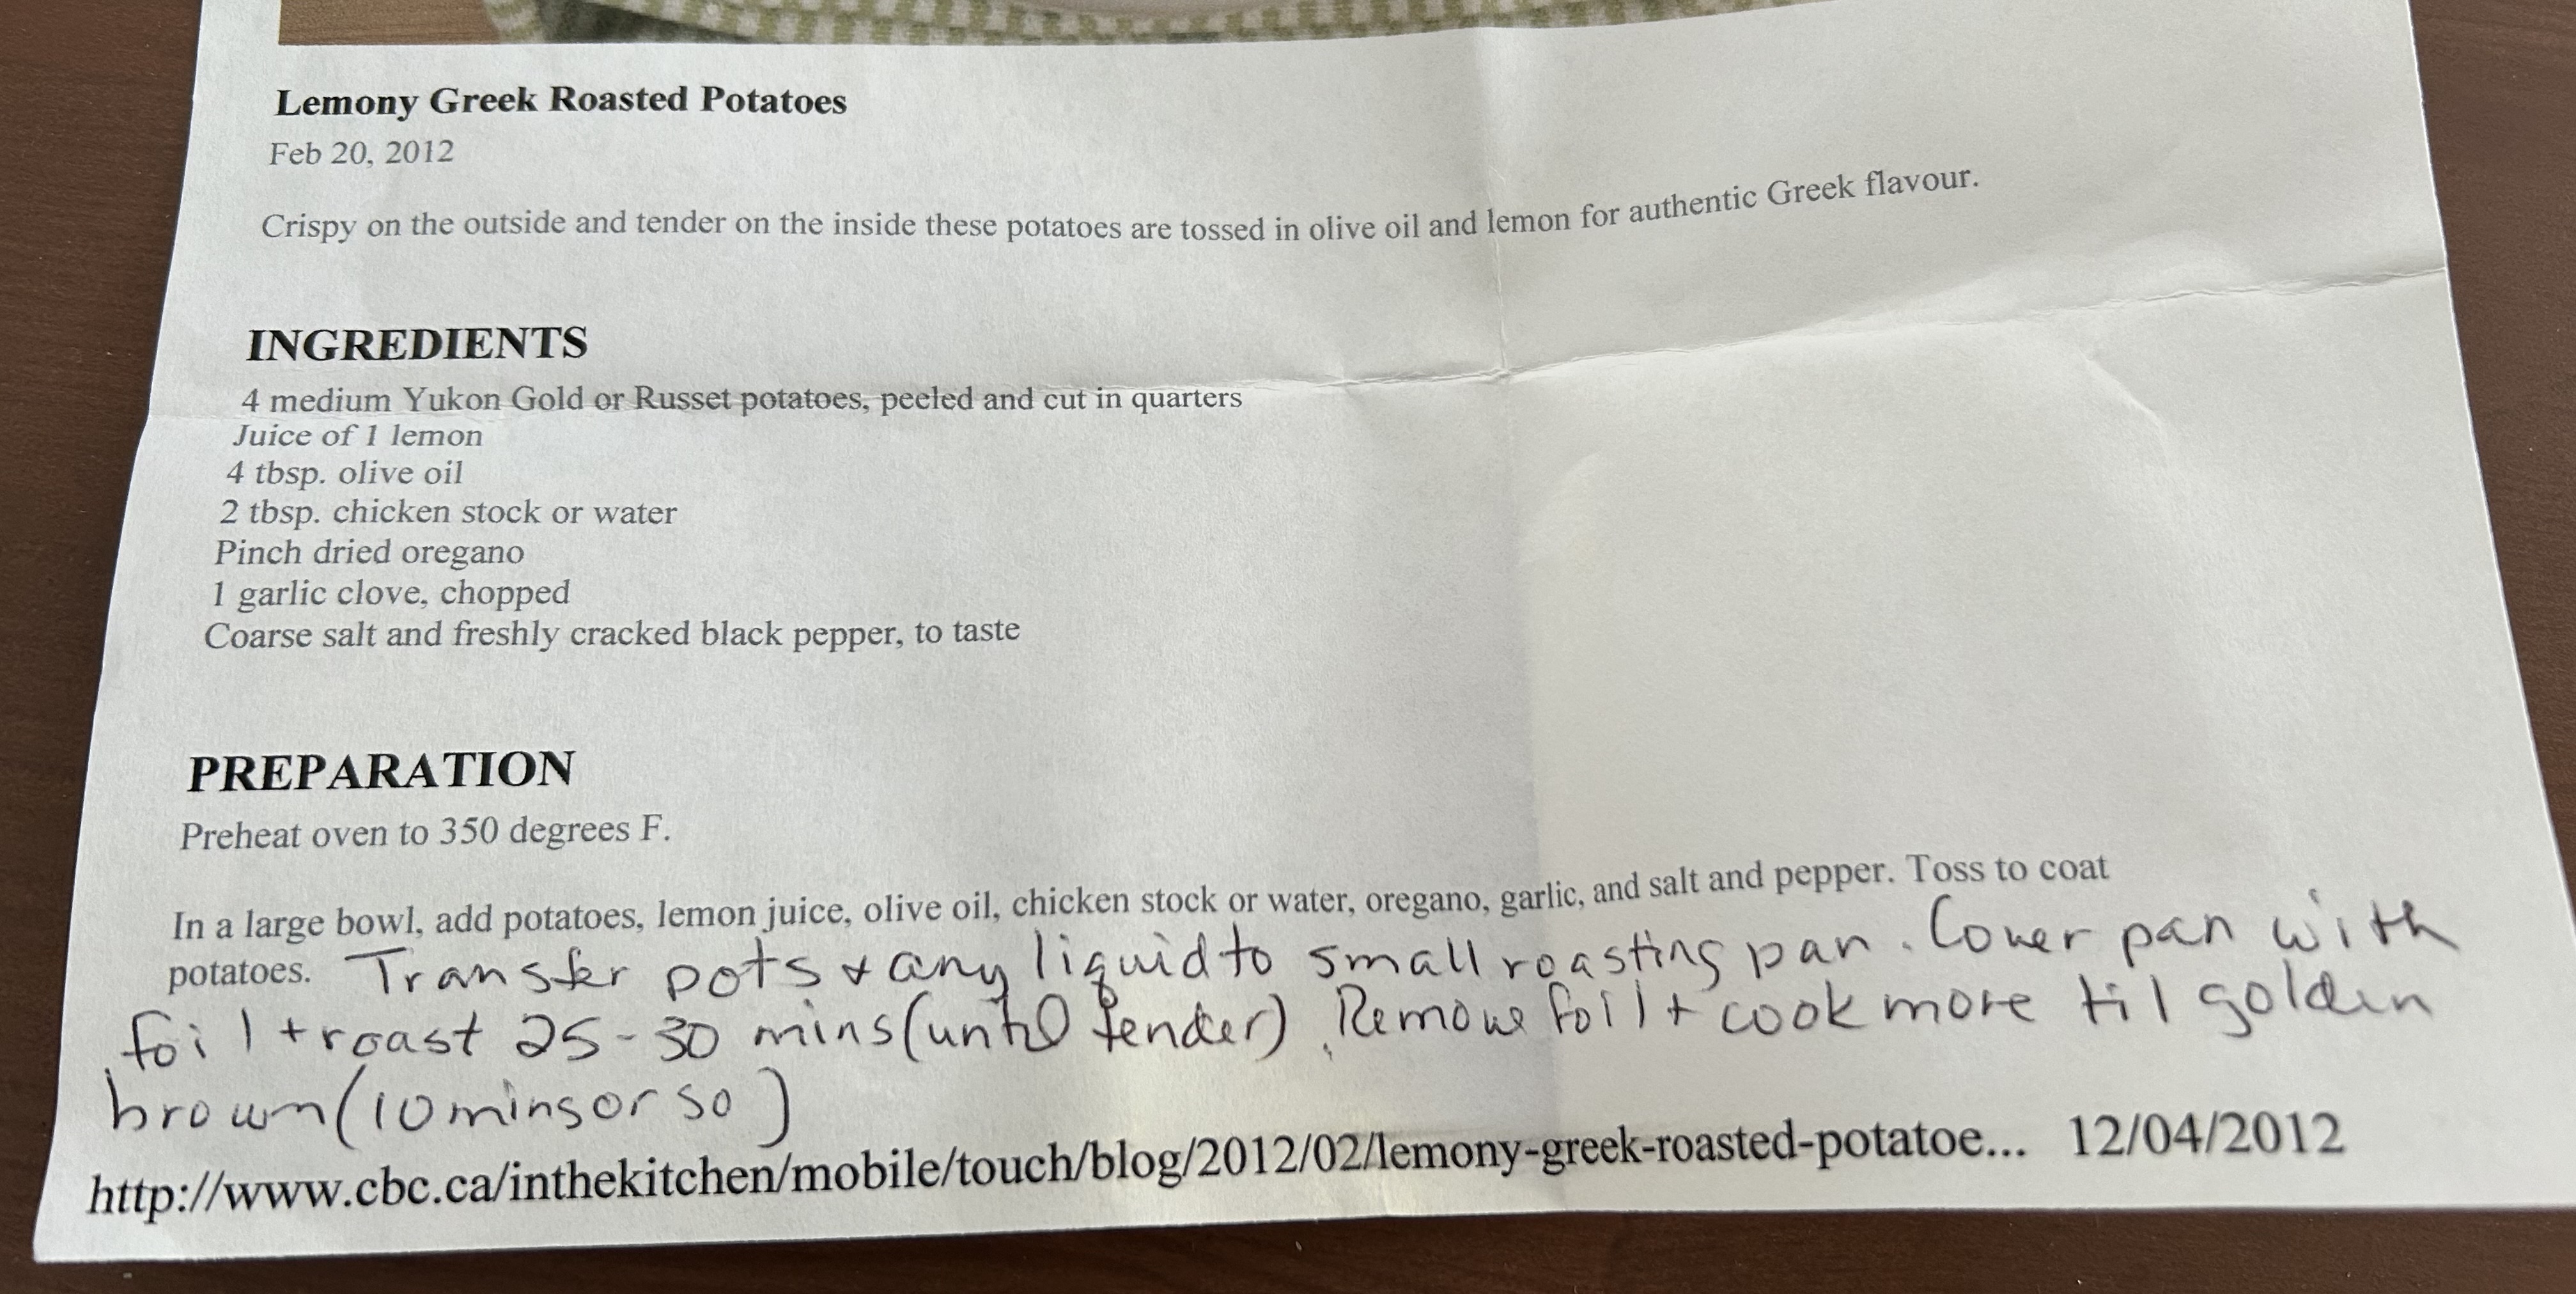 Lemony Greek Roasted Potatoes
Feb 20, 2012
Crispy on the outside and tender on the inside these potatoes are tossed in olive oil and lemon for authentic Greek flavour.
INGREDIENTS
4 medium Yukon Gold or Russet potatoes, peeled and cut in quarters
Juice of 1 lemon
4 tbsp. olive oil
2 tbsp. chicken stock or water
Pinch dried oregano
1 garlic clove, chopped
Coarse salt and freshly cracked black pepper, to taste
PREPARATION
Preheat oven to 350 degrees F.
In a large bowl, add potatoes, lemon juice, olive oil, chicken stock or water, oregano, garlic, and salt and pepper. Toss to coat
potatoes. Transfer pots + any liquid to small roasting pan. Cover pan with
foil + roast 25-30 mins (until tender). Remove foil + cook more til golden
brown (10 mins or so)
http://www.cbc.ca/inthekitchen/mobile/touch/blog/2012/02/lemony-greek-roasted-potatoe... 12/04/2012